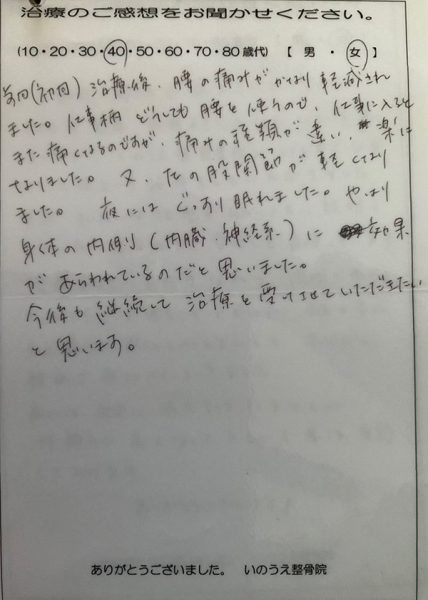 治療のご感想をお聞かせください。
(10・20・30・40・50・60・70・80歳代)【 男 ・ 女 】
前回(初回)治療後、腰の痛みがかなり軽減され
ました。仕事柄 どうしても腰を使うので、仕事に入ると
また痛くなるのですが、痛みの種類が違い、楽に
なりました。又、左の股関節が軽くなり
ました。夜にはぐっすり眠れました。やはり
身体の内側(内臓・神経系)に 効果
があらわれているのだと思いました。
今後も継続して治療を受けさせていただきたい
と思います。
ありがとうございました。 いのうえ整骨院